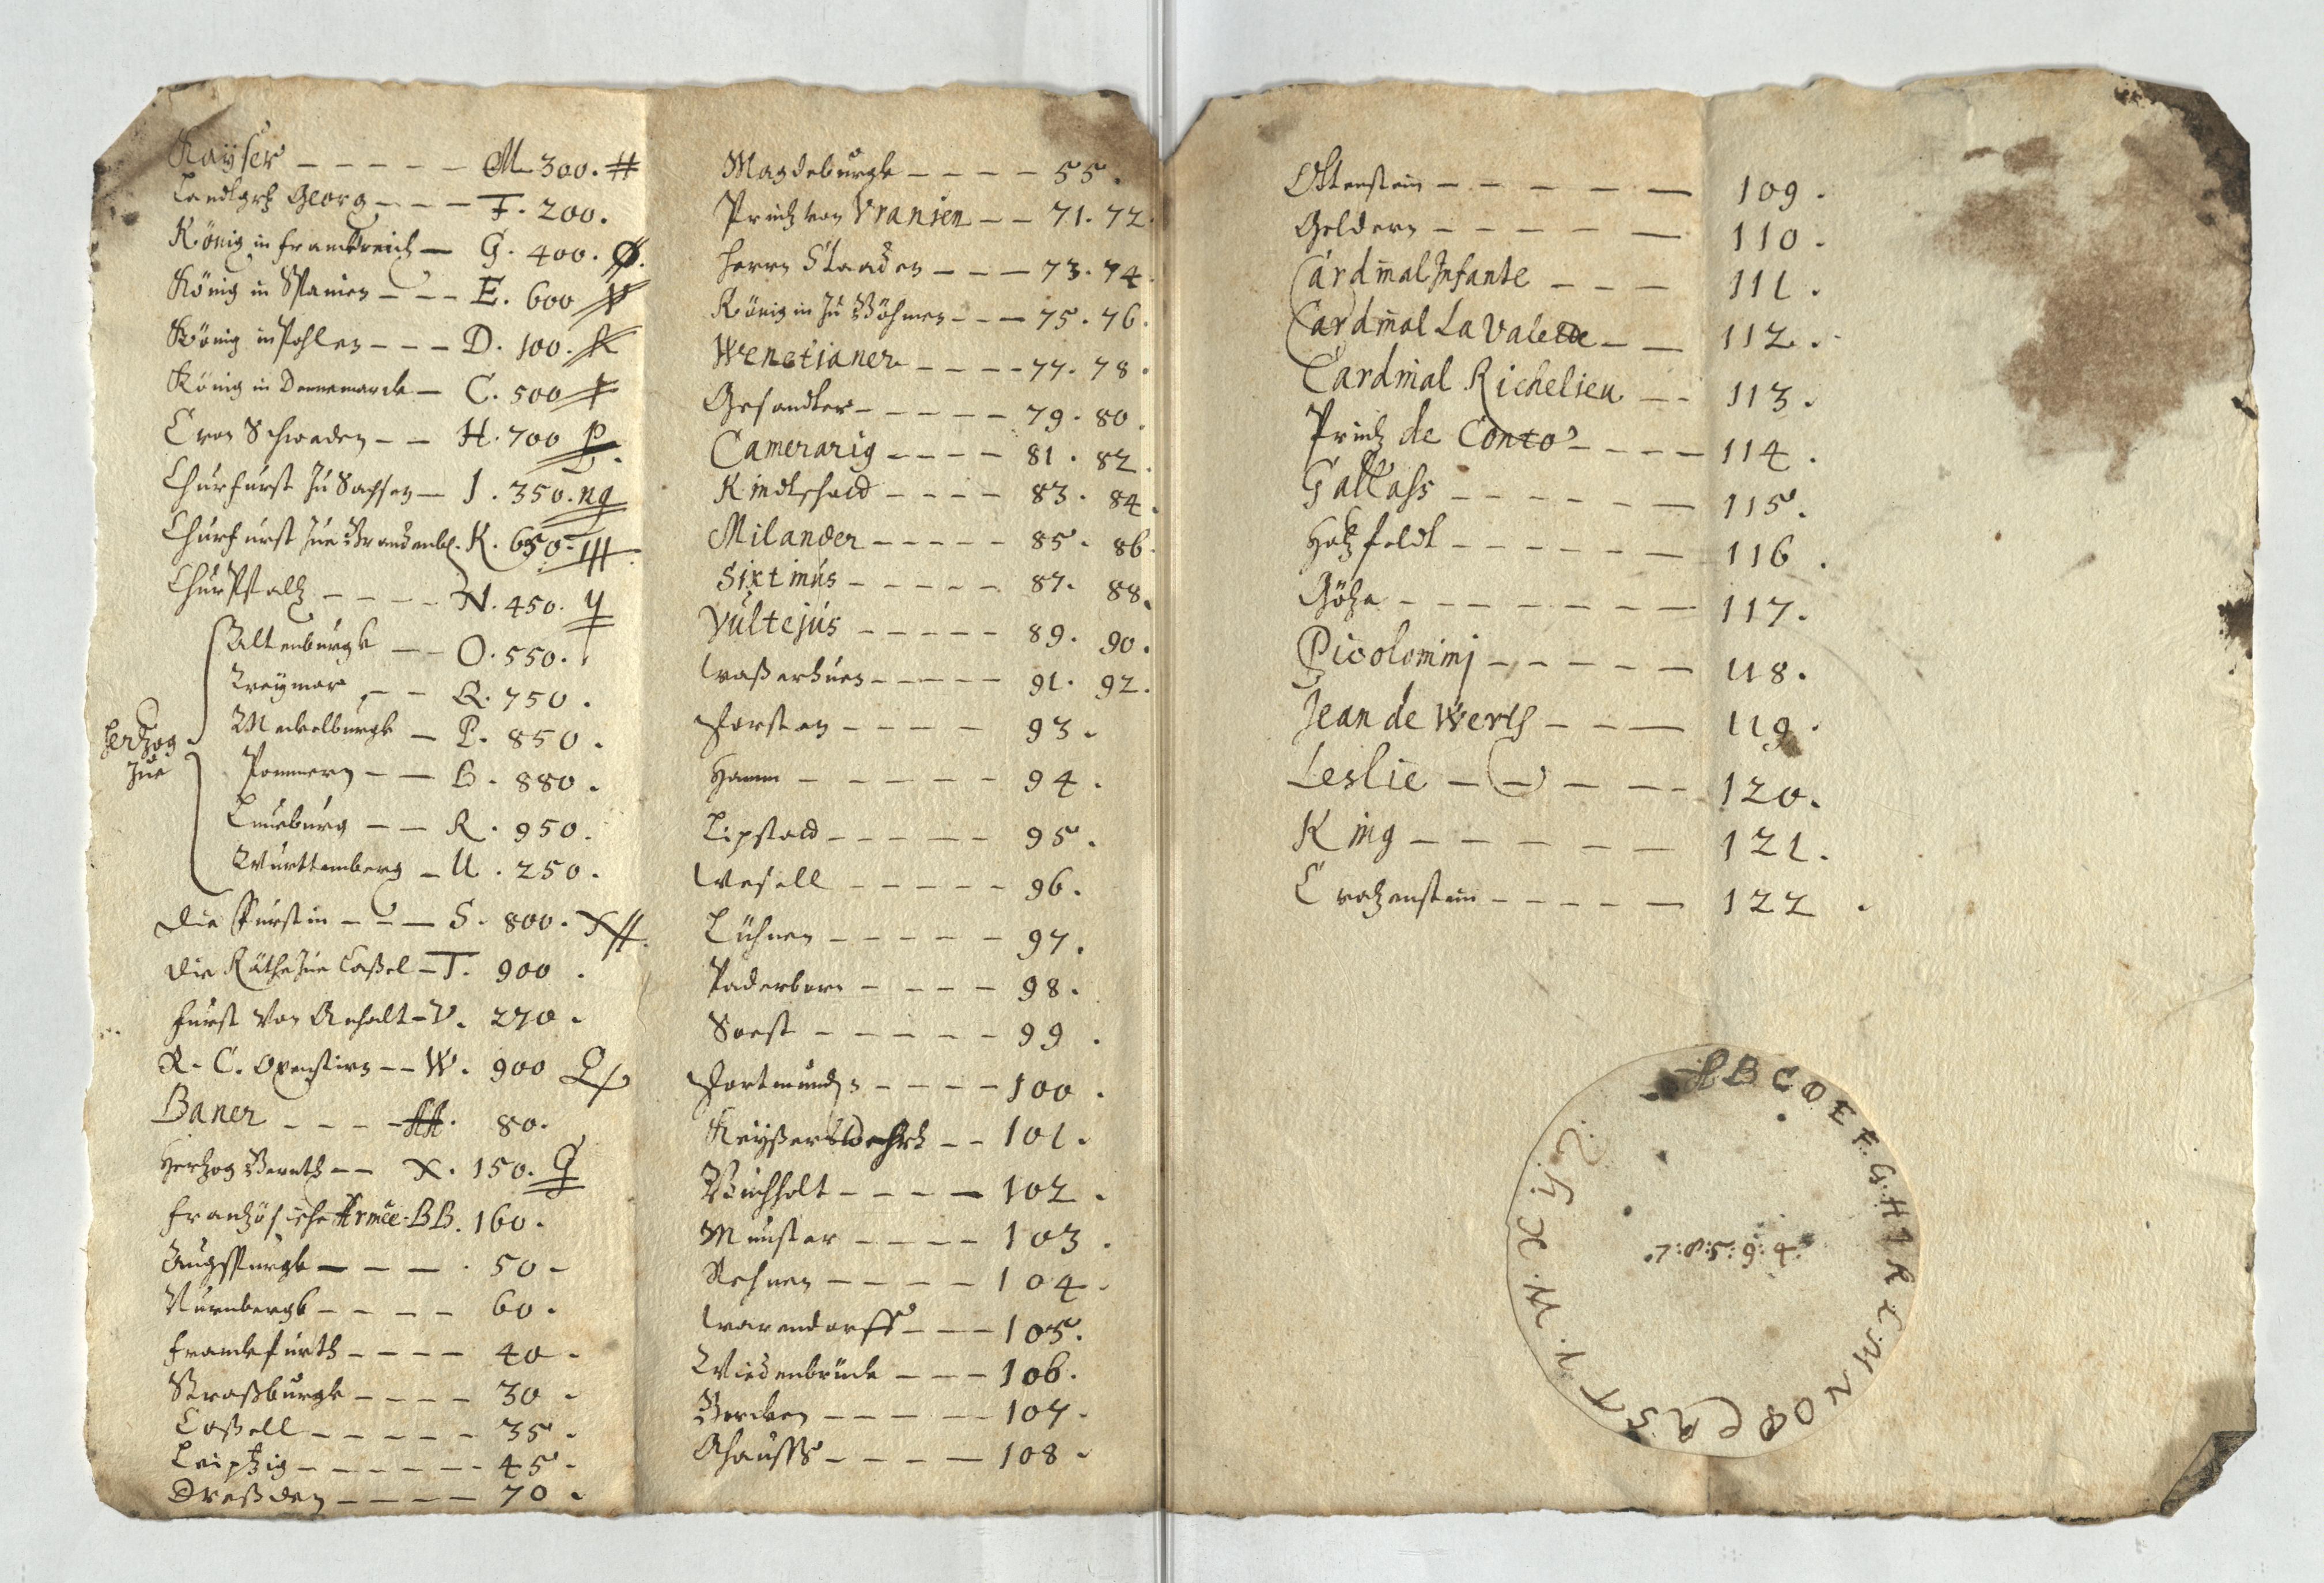 Kayser – – – – – M 300. #
Landtgrf Georg – – – F. 200.
König in Franckreich – G. 400. Ø.
König in Spanien – – – E. 600
König in Pohlen – – – D. 100.
König in Dennemarck – C. 500
Cron Schweden – – H. 700
Churfürst zu Sachsen – I. 350. ng
Churfürst zue Brandenb. K. 650.
Churpfaltz – – – – N. 450. y
Hertzog zue
Altenburgk – – O. 550.
Weymar – – Q. 750.
Meckelburgk – P. 850.
Pommern – – B. 880.
Lüneburg – – R. 950.
Württemberg – U. 250.
Die Fürstin – – – S. 800.
Die Räthe zue Caßel – T. 900.
Fürst von Anhalt – V. 270.
R. C. Oxenstirn – – W. 900
Baner – – – – AA. 80.
Hertzog Bernth – – X. 150.
Frantzösische Armée. BB. 160.
Augspurgk – – – – 50 –
Nürnbergk – – – – 60.
Franckfurth – – – – 40 –
Straßburgk – – – – 30 –
Caßell – – – – – 35 –
Leiptzig – – – – – – 45 –
Dreßden – – – – – 70 –
Magdeburgk – – – – 55.
Printz von Vranien – – 71. 72
Herrn Staaden – – – 73. 74
Königin zu Böhmen – – – 75. 76.
Wenetianer – – – – 77. 78.
Gesandter – – – – – 79. 80.
Camerarig – – – – 81. 82.
– – – – 83. 84.
Milander – – – – – 85. 86.
Sixtinus – – – – – 87. 88.
Vultejus – – – – – 89. 90.
– – – – – 91. 92.
Dorsten – – – – 93.
Hamm – – – – – 94.
Lipstad – – – – – 95.
Wesell – – – – – 96.
Lühnen – – – – – 97.
Paderborn – – – – 98.
Soest – – – – – 99.
Dortmundt – – – – 100.
– – 101.
– – – – 102.
Münster – – – – 103.
Rehnen – – – – 104.
Warendorff – – – 105.
Wiedenbrück – – – 106.
Borcken – – – – – 107.
Ahauss – – – – 108.
Ottenstein – – – – – – 109.
Geldern – – – – – – 110.
Cardinal Infante – – – 111.
Cardinal La Valette – – 112.
Cardinal Richelieu – – 113.
Printz de Conto – – – – 114.
Gallass – – – – – – 115.
Hatzfeldt – – – – – – 116.
Götze – – – – – – – 117.
Picolominj – – – – – 118.
Jean de Werth – – – 119.
Leslie – – – – – 120.
King – – – – – – 121.
Cratzenstein – – – – – 122.
A B C D E F. G. H I K L M N O P Q R S T V. W. X Y Z
4:6:5:8:7